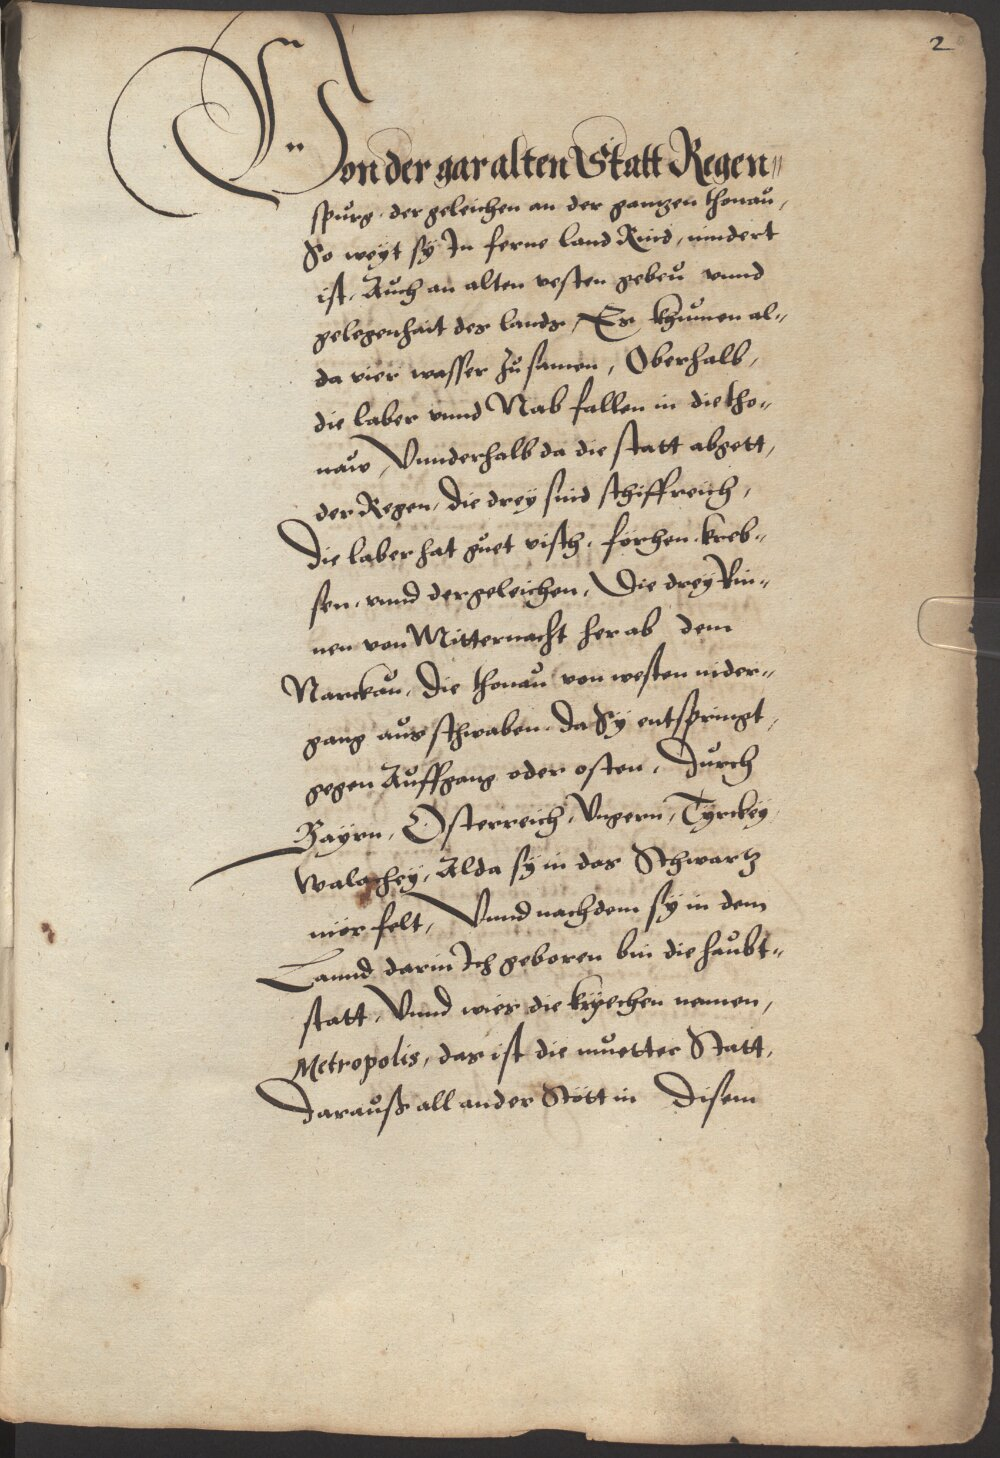 2
Von der gar alten Statt Regen„
spurg. der geleichen an der gantzen thonaů,
So weyt sy In ferne land Rind, nindert
ist. Aůch an alten vesten gebeů vnnd
gelegenhait des lands, Es khůmen al„
da vier wasser zůsamen, Oberhalb,
die laber vnnd Nab fallen in die tho„
naw, Vnnderhalb da die statt abgett,
der Regen, die drey sind schiffreich,
Die laber hat gůet visch. förhen. kreb„
sen. vnnd dergeleichen, Die drey Rin„
nen von Mitternacht herab dem
Narckaů, die thonaů von westen nider„
gang aůs schwaben. da Sy entspringt,
gegen Aůffgang oder osten, Důrch
Bayrn, Osterreich, Vngern, Tyrckey
Walachey, Alda sy in das Schwartz
mör felt, Vnnd nachdem sy in dem
Lannd darin Ich geboren bin die haůbt„
statt, Vnnd wies die kryechen nennen,
Metropolis, das ist die můetter Statt,
Daraůß all ander Stött in Disem